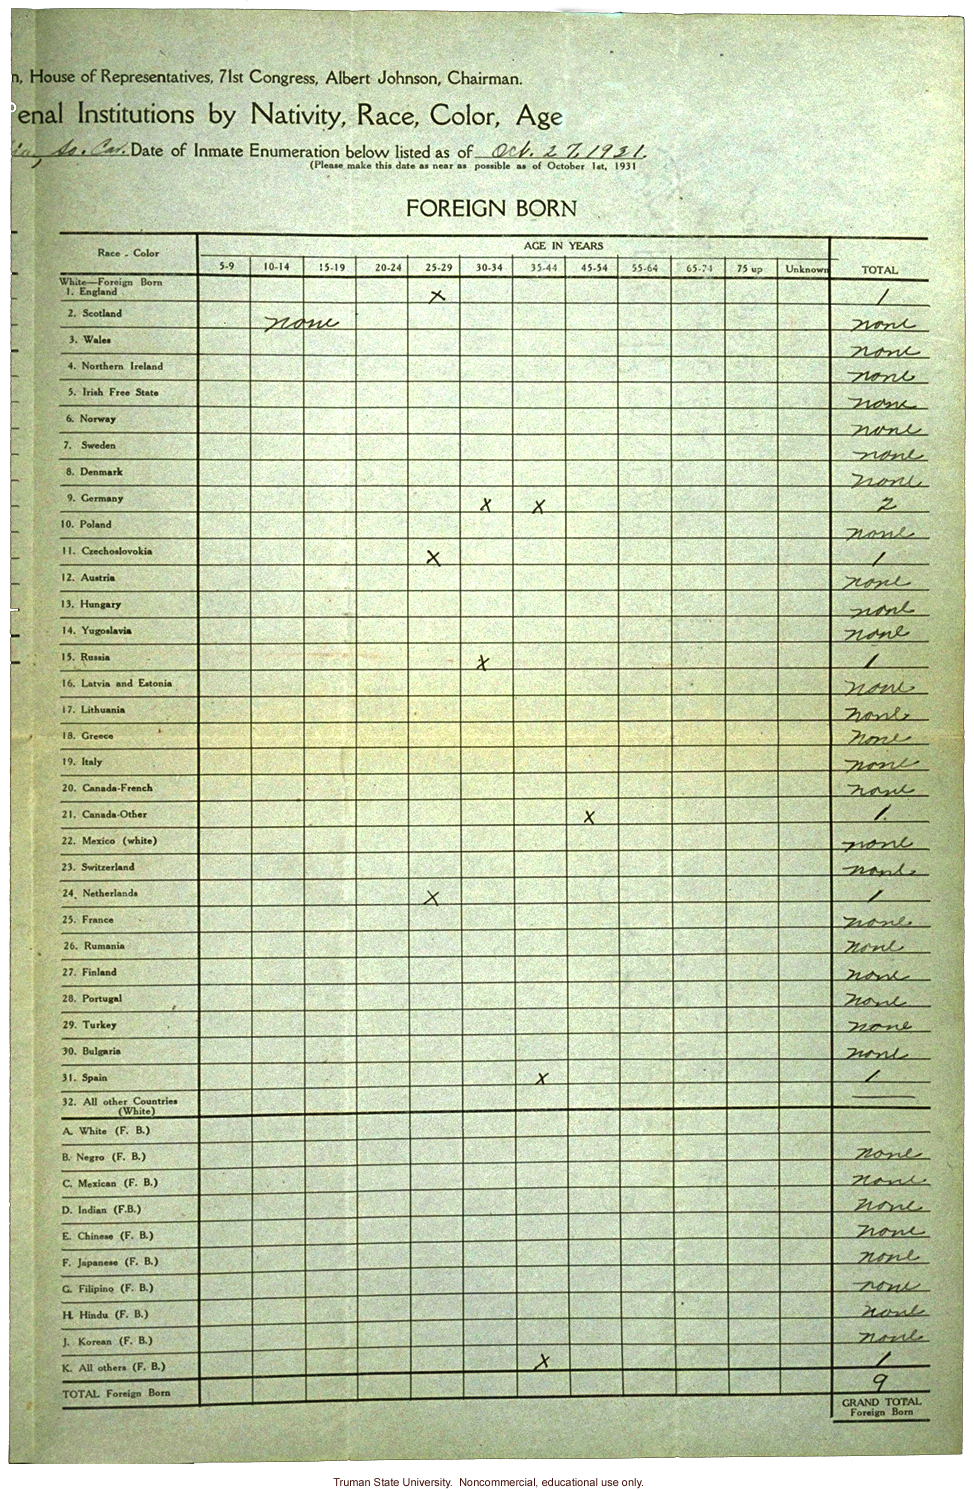 n, House of Representatives, 71st Congress, Albert Johnson, Chairman.
enal Institutions by Nativity, Race, Color, Age
So. Car. Date of Inmate Enumeration below listed as of Oct. 27, 1931.
(Please make this date as near as possible as of October 1st, 1931
FOREIGN BORN
Race - Color AGE IN YEARS TOTAL
5-9 10-14 15-19 20-24 25-29 30-34 35-44 45-54 55-64 65-74 75 up Unknown
White—Foreign Born
1. England x 1
2. Scotland none none
3. Wales none
4. Northern Ireland none
5. Irish Free State none
6. Norway none
7. Sweden none
8. Denmark none
9. Germany x x 2
10. Poland none
11. Czechoslovokia x 1
12. Austria none
13. Hungary none
14. Yugoslavia none
15. Russia x 1
16. Latvia and Estonia none
17. Lithuania none
18. Greece none
19. Italy none
20. Canada-French none
21. Canada-Other x 1.
22. Mexico (white) none
23. Switzerland none
24. Netherlands x 1
25. France none
26. Rumania none
27. Finland none
28. Portugal none
29. Turkey none
30. Bulgaria none
31. Spain x 1
32. All other Countries —
(White)
A. White (F. B.)
B. Negro (F. B.) none
C. Mexican (F. B.) none
D. Indian (F.B.) none
E. Chinese (F. B.) none
F. Japanese (F. B.) none
G. Filipino (F. B.) none
H. Hindu (F. B.) none
J. Korean (F. B.) none
K. All others (F. B.) x 1
TOTAL Foreign Born 9
GRAND TOTAL
Foreign Born
Truman State University. Noncommercial, educational use only.